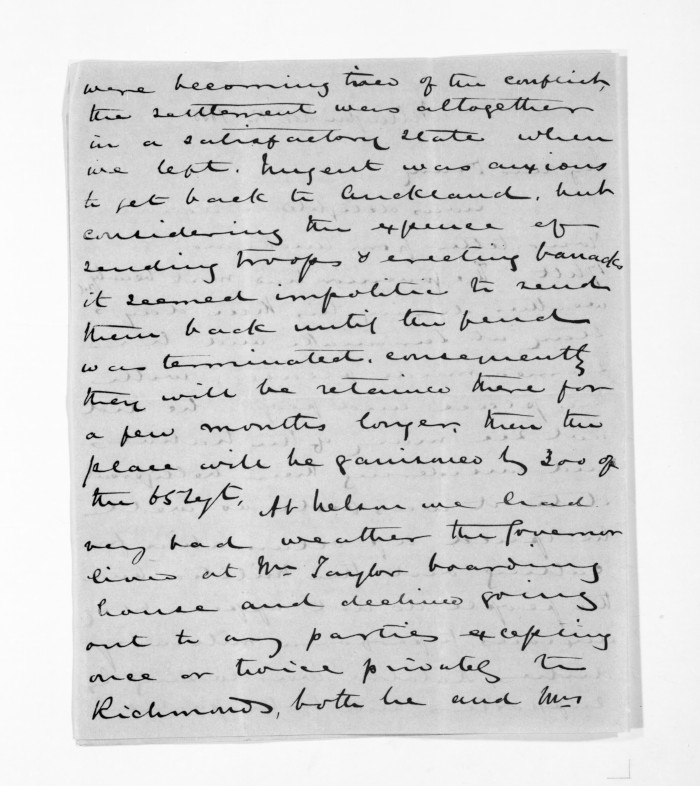 were becoming tired of the conflict,
the settlement was altogether
in a satisfactory state when
we left. Nugent was anxious
to get back to Auckland, but
considering the expence of
sending troops & erecting barracks
it seemed impolitic to send
them back until the feud
was terminated. consequently
they will be retained there for
a few months longer, then the
place will be garrisoned by 300 of
the 65 regt. At Nelson we had
very bad weather the Governor
lived at Mrs Taylor boarding
house and declined going
out to any parties excepting
once or twice privately to
Richmonds, both he and Mrs